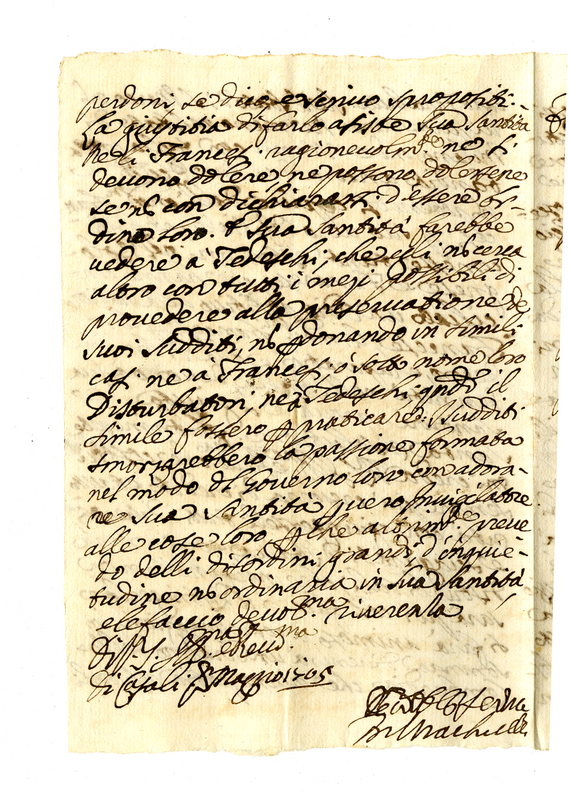 perdoni, se dico, e scrivo spropositi.
La giustitia di farlo assiste Sua Santità
nè li Francesi ragionevolm.te ne si
devono dolere, ne possono dolersene
se nõ con dichiararsi d'essere or-
dine loro. e Sua Santità farebbe
vedere a' Tedeschi, che elli nõ cerca
altro con tutti i mezi possibili di
provedere alla preservatione de
suoi sudditi, nõ perdonando in simili
casi ne a' Francesi, ò sotto nome loro
Disturbatori, ne à Tedeschi, qñdo il
simile fossero per praticare. I sudditi
smorzarebbero la passione formata
nel modo del Governo loro con adora-
re sua Santità vero invigilatore
alle cose loro perche altrim.te preve
do delli disordini grandi, d'inquie-
tudine nõ ordinaria in sua Santità
e le faccio devot.ma riverenza
di V. S. Ill.ma e Rev.ma
di Casali 8 Maggio 1705